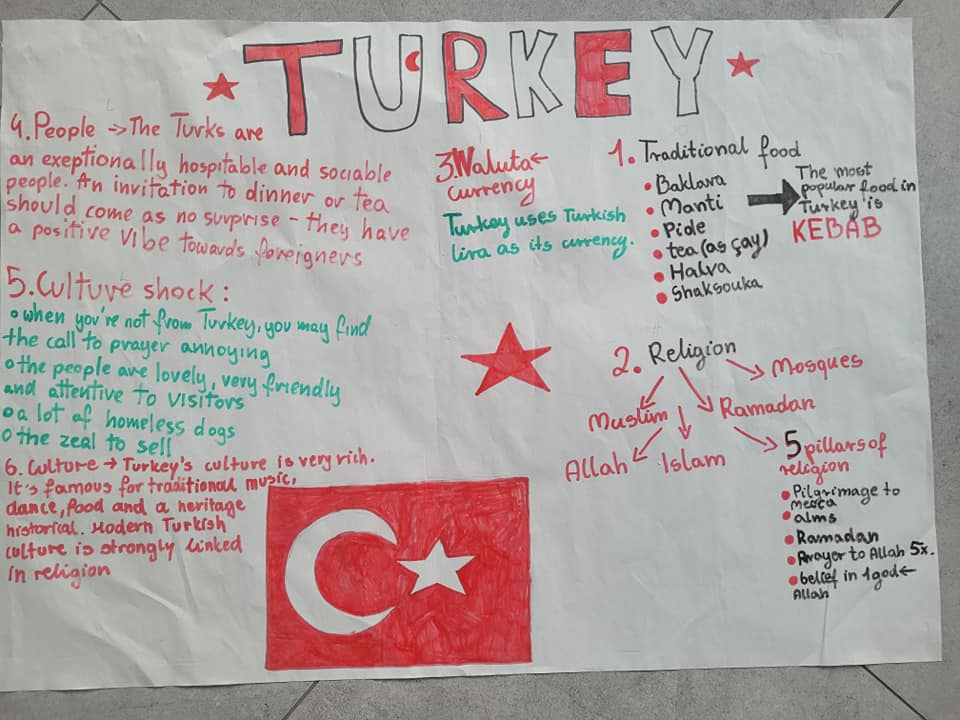 TURKEY
4. People → The Turks are
an exeptionally hospitable and sociable
people. An invitation to dinner or tea
should come as no surprise - they have
a positive vibe towards foreigners
5. Culture shock :
when you're not from Turkey, you may find
the call to prayer annoying
the people are lovely, very friendly
and attentive to visitors
a lot of homeless dogs
the zeal to sell
6. Culture → Turkey's culture is very rich.
It's famous for traditional music,
dance, food and a heritage
historical. Modern Turkish
culture is strongly linked
in religion
3. Waluta ←
currency
Turkey uses Turkish
lira as its currency.
1. Traditional food
• Baklava
• Manti
• Pide
• tea (as çay)
• Halva
• Shaksouka
The most
popular food in
Turkey is
KEBAB
2. Religion
Mosques
Muslim
Ramadan
Allah
Islam
5 pillars of
religion
• Pilgrimage to
mecca
• alms
• Ramadan
• Prayer to Allah 5x.
• belief in 1 god ←
Allah